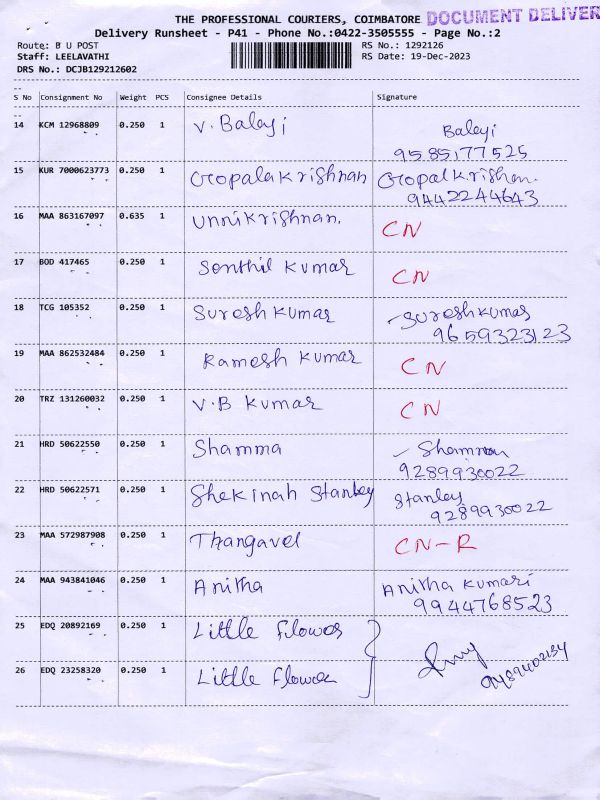 THE PROFESSIONAL COURIERS, COIMBATORE DOCUMENT DELIVER
Delivery Runsheet - P41 - Phone No.:0422-3505555 - Page No.:2
Route: B U POST RS No.: 1292126
Staff: LEELAVATHI RS Date: 19-Dec-2023
DRS No.: DCJB129212602
S No Consignment No Weight PCS Consignee Details Signature
14 KCM 12968809 0.250 1 V. Balaji Balaji
9585177525
15 KUR 7000623773 0.250 1 Gopalakrishnan Gopalkrishnan.
9442244643
16 MAA 863167097 0.635 1 Unnikrishnan. CN
17 BOD 417465 0.250 1 Senthil Kumar CN
18 TCG 105352 0.250 1 Suresh Kumar Sureshkumar
9659323123
19 MAA 862532484 0.250 1 Ramesh Kumar CN
20 TRZ 131260032 0.250 1 V.B Kumar CN
21 HRD 50622550 0.250 1 Shamma Shamma
9289930022
22 HRD 50622571 0.250 1 Shekinah Stanley Stanley
9289930022
23 MAA 572987908 0.250 1 Thangavel CN-R
24 MAA 943841046 0.250 1 Anitha Anitha Kumari
9944768523
25 EDQ 20892169 0.250 1 Little flower
26 EDQ 23258320 0.250 1 Little flower